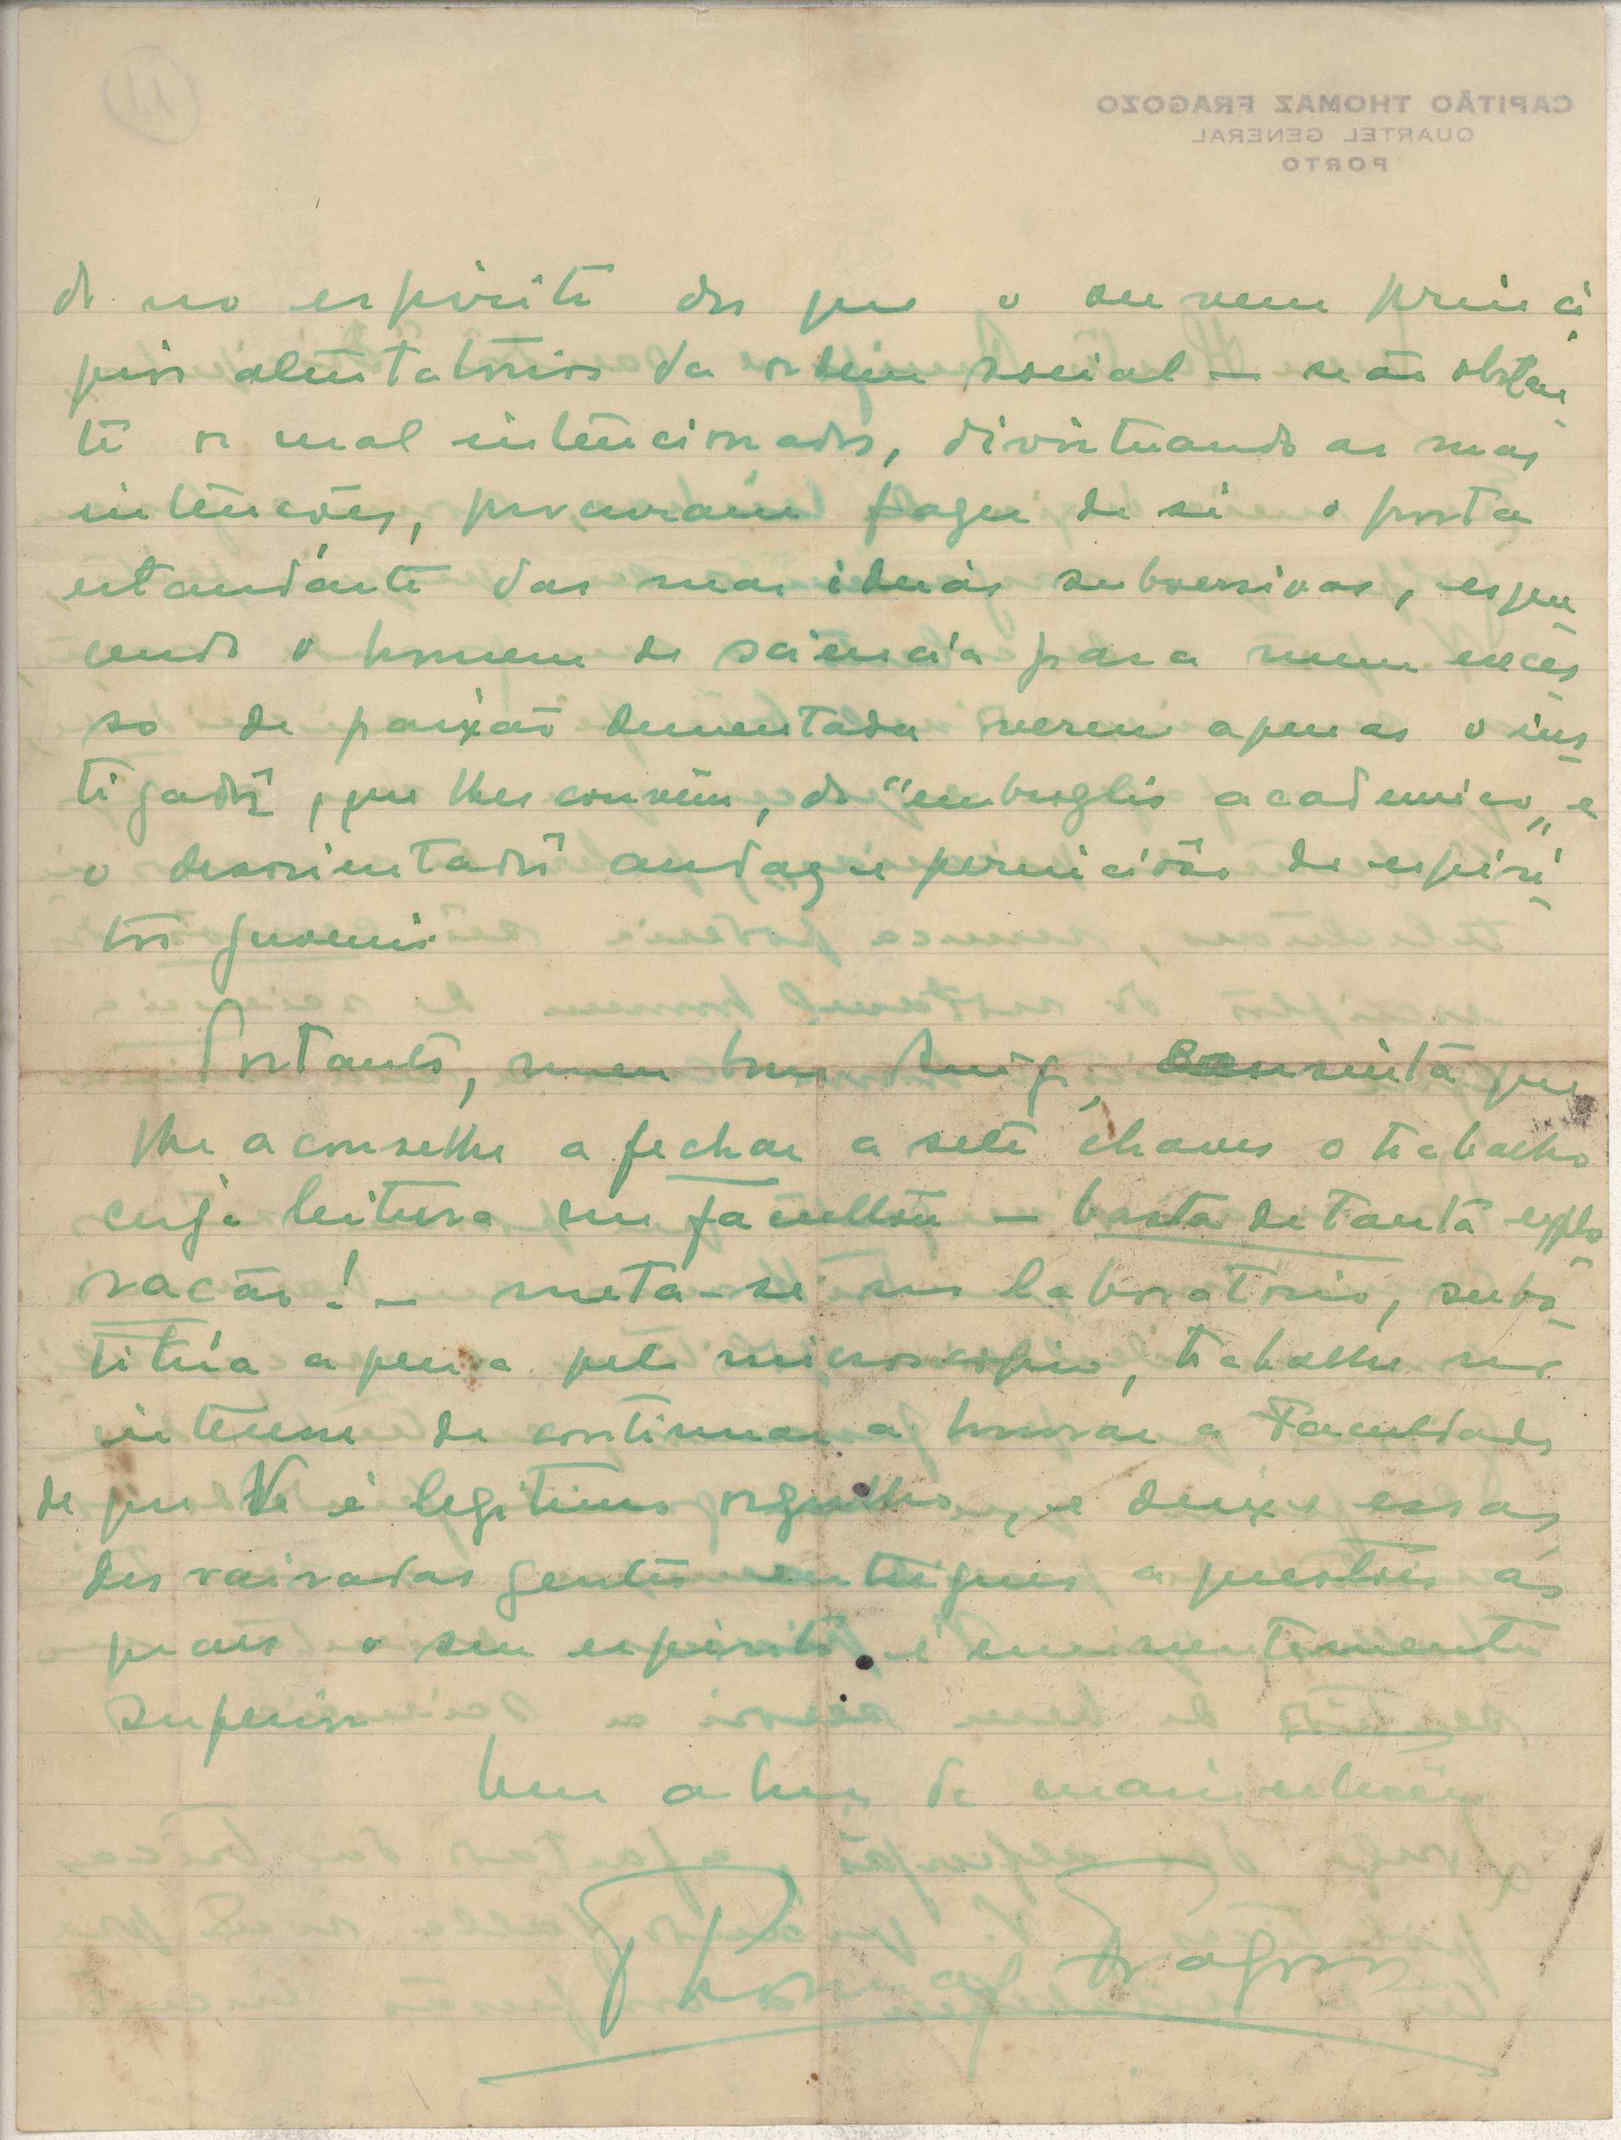 CAPITÃO THOMAZ FRAGOZO
QUARTEL GENERAL
PORTO
do no espirito dos que o ouvem princi
pios atentatorios da ordem social — não obstan
te os mal intencionados, divirtuando as suas
intenções, procuraram fazer de si o porta
estandarte das suas ideias subversivas, esque
cendo o homem de sciencia para num exces
so de paixão dementada verem apenas o ins
tigador, que lhes convém, do "embroglio academico" e
o desorientador audaz e pernicioso de espiri
tos juvenis.
Portanto, meu bom Amigo, consinta que
lhe aconselhe a fechar a sete chaves o trabalho
cuja leitura me facultou — basta de tanta explo
ração! — meta-se no laboratorio, subs
titúa a pena pelo microscopio, trabalhe no
interesse de continuar a honrar a Faculdade
de que Ve é legitimo orgulho, e deixe essas
desvairadas gentes entregues a questões ás
quaes o seu espirito é eminentemente
superior
Um abraço de
Thomaz Fragoso